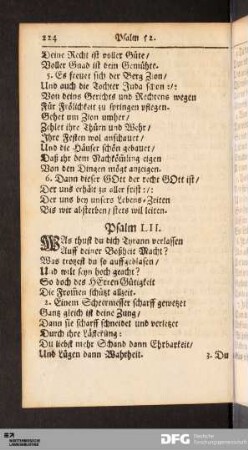 224 Psalm 52.
Deine Recht ist voller Güte/
Voller Gnad ist dein Gemühte.
5. Es freuet sich der Berg Zion/
Und auch die Tochter Juda schon :/:
Von deins Gerichts und Rechtens wegen
Für Frölichkeit zu springen pflegen.
Gehet um Zion umher/
Zehlet ihre Thürn und Wehr/
Ihre Festen wol anschauet/
Und die Häuser schön gebauet/
Daß ihr dem Nachkömling eigen
Von den Dingen mögt anzeigen.
6. Dann dieser GOtt der recht GOtt ist/
Der uns erhält zu aller frist :/:
Der uns bey unsers Lebens-Zeiten
Bis wir absterben/ stets wil leiten.
Psalm LII.
WAs thust du dich Tyrann verlassen
Auff deiner Bosheit Macht?
Was trotzest du so auffgeblasen/
Und wilt seyn hoch geacht?
So doch des HErren Gütigkeit
Die Frommen schützt allzeit.
2. Einem Scheermesser scharff gewetzet
Gantz gleich ist deine Zung/
Dann sie scharff schneidet und verletzet
Durch ihre Lästerung:
Du liebst mehr Schand dann Ehrbarkeit/
Und Lügen dann Wahrheit. 3. Du
DFG Deutsche
Forschungsgemeinschaft